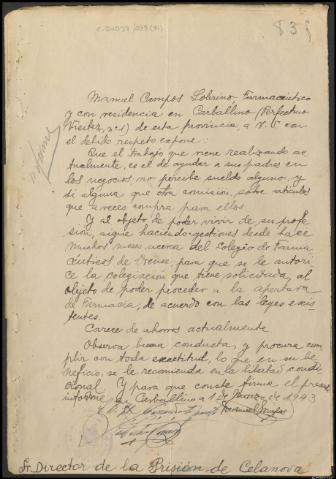 838
Manuel Campos Sobrino, Farmacéutico
y con residencia en Carballino (Perfectino
Vieitez, nº1) de esta provincia a V. S con
el debido respeto expone:
Que el trabajo que viene realizando ac
tualmente, es el de ayudar a sus padres en
los negocios, no percibe sueldo alguno, y
si alguna que otra comisión, sobre artículos
que a veces compra para ellos.
Y al objeto de poder vivir de su profe
sión, sigue haciendo gestiones desde hace
muchos meses acerca del Colegio de Farma
céuticos de Orense, para que se le autori
ce la colegiación que tiene solicitada, al
objeto de poder proceder a la apertura
de Farmacia, de acuerdo con las leyes exis
tentes.
Carece de ahorros actualmente.
Observa buena conducta, y procura cum
plir con toda exactitud, lo que en su be
neficio, se le recomienda en la libertad condi
cional. Y para que conste firma el presente
informe en Carballino a 1 de 1943
Manuel Campos
Sr Director de la Prisión de Celanova